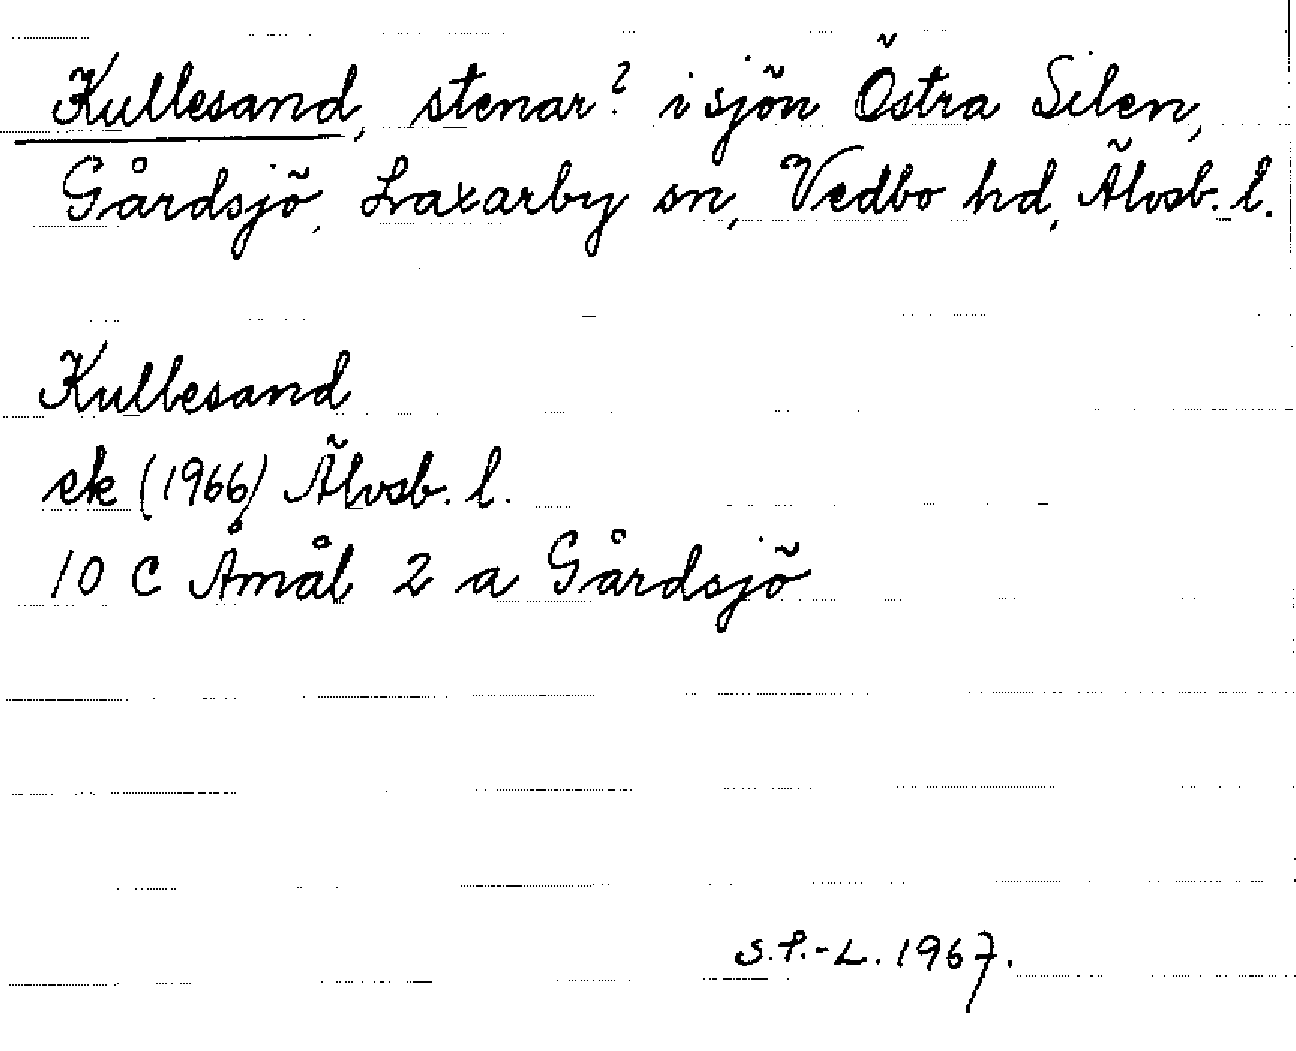 Kullesand, stenar? i sjön Östra Silen,
Gårdsjö, Laxarby sn, Vedbo hd, Älvsb. l.
Kullesand
ek (1966) Älvsb. l.
10 C Åmål 2 a Gårdsjö
S.P.-L. 1967.